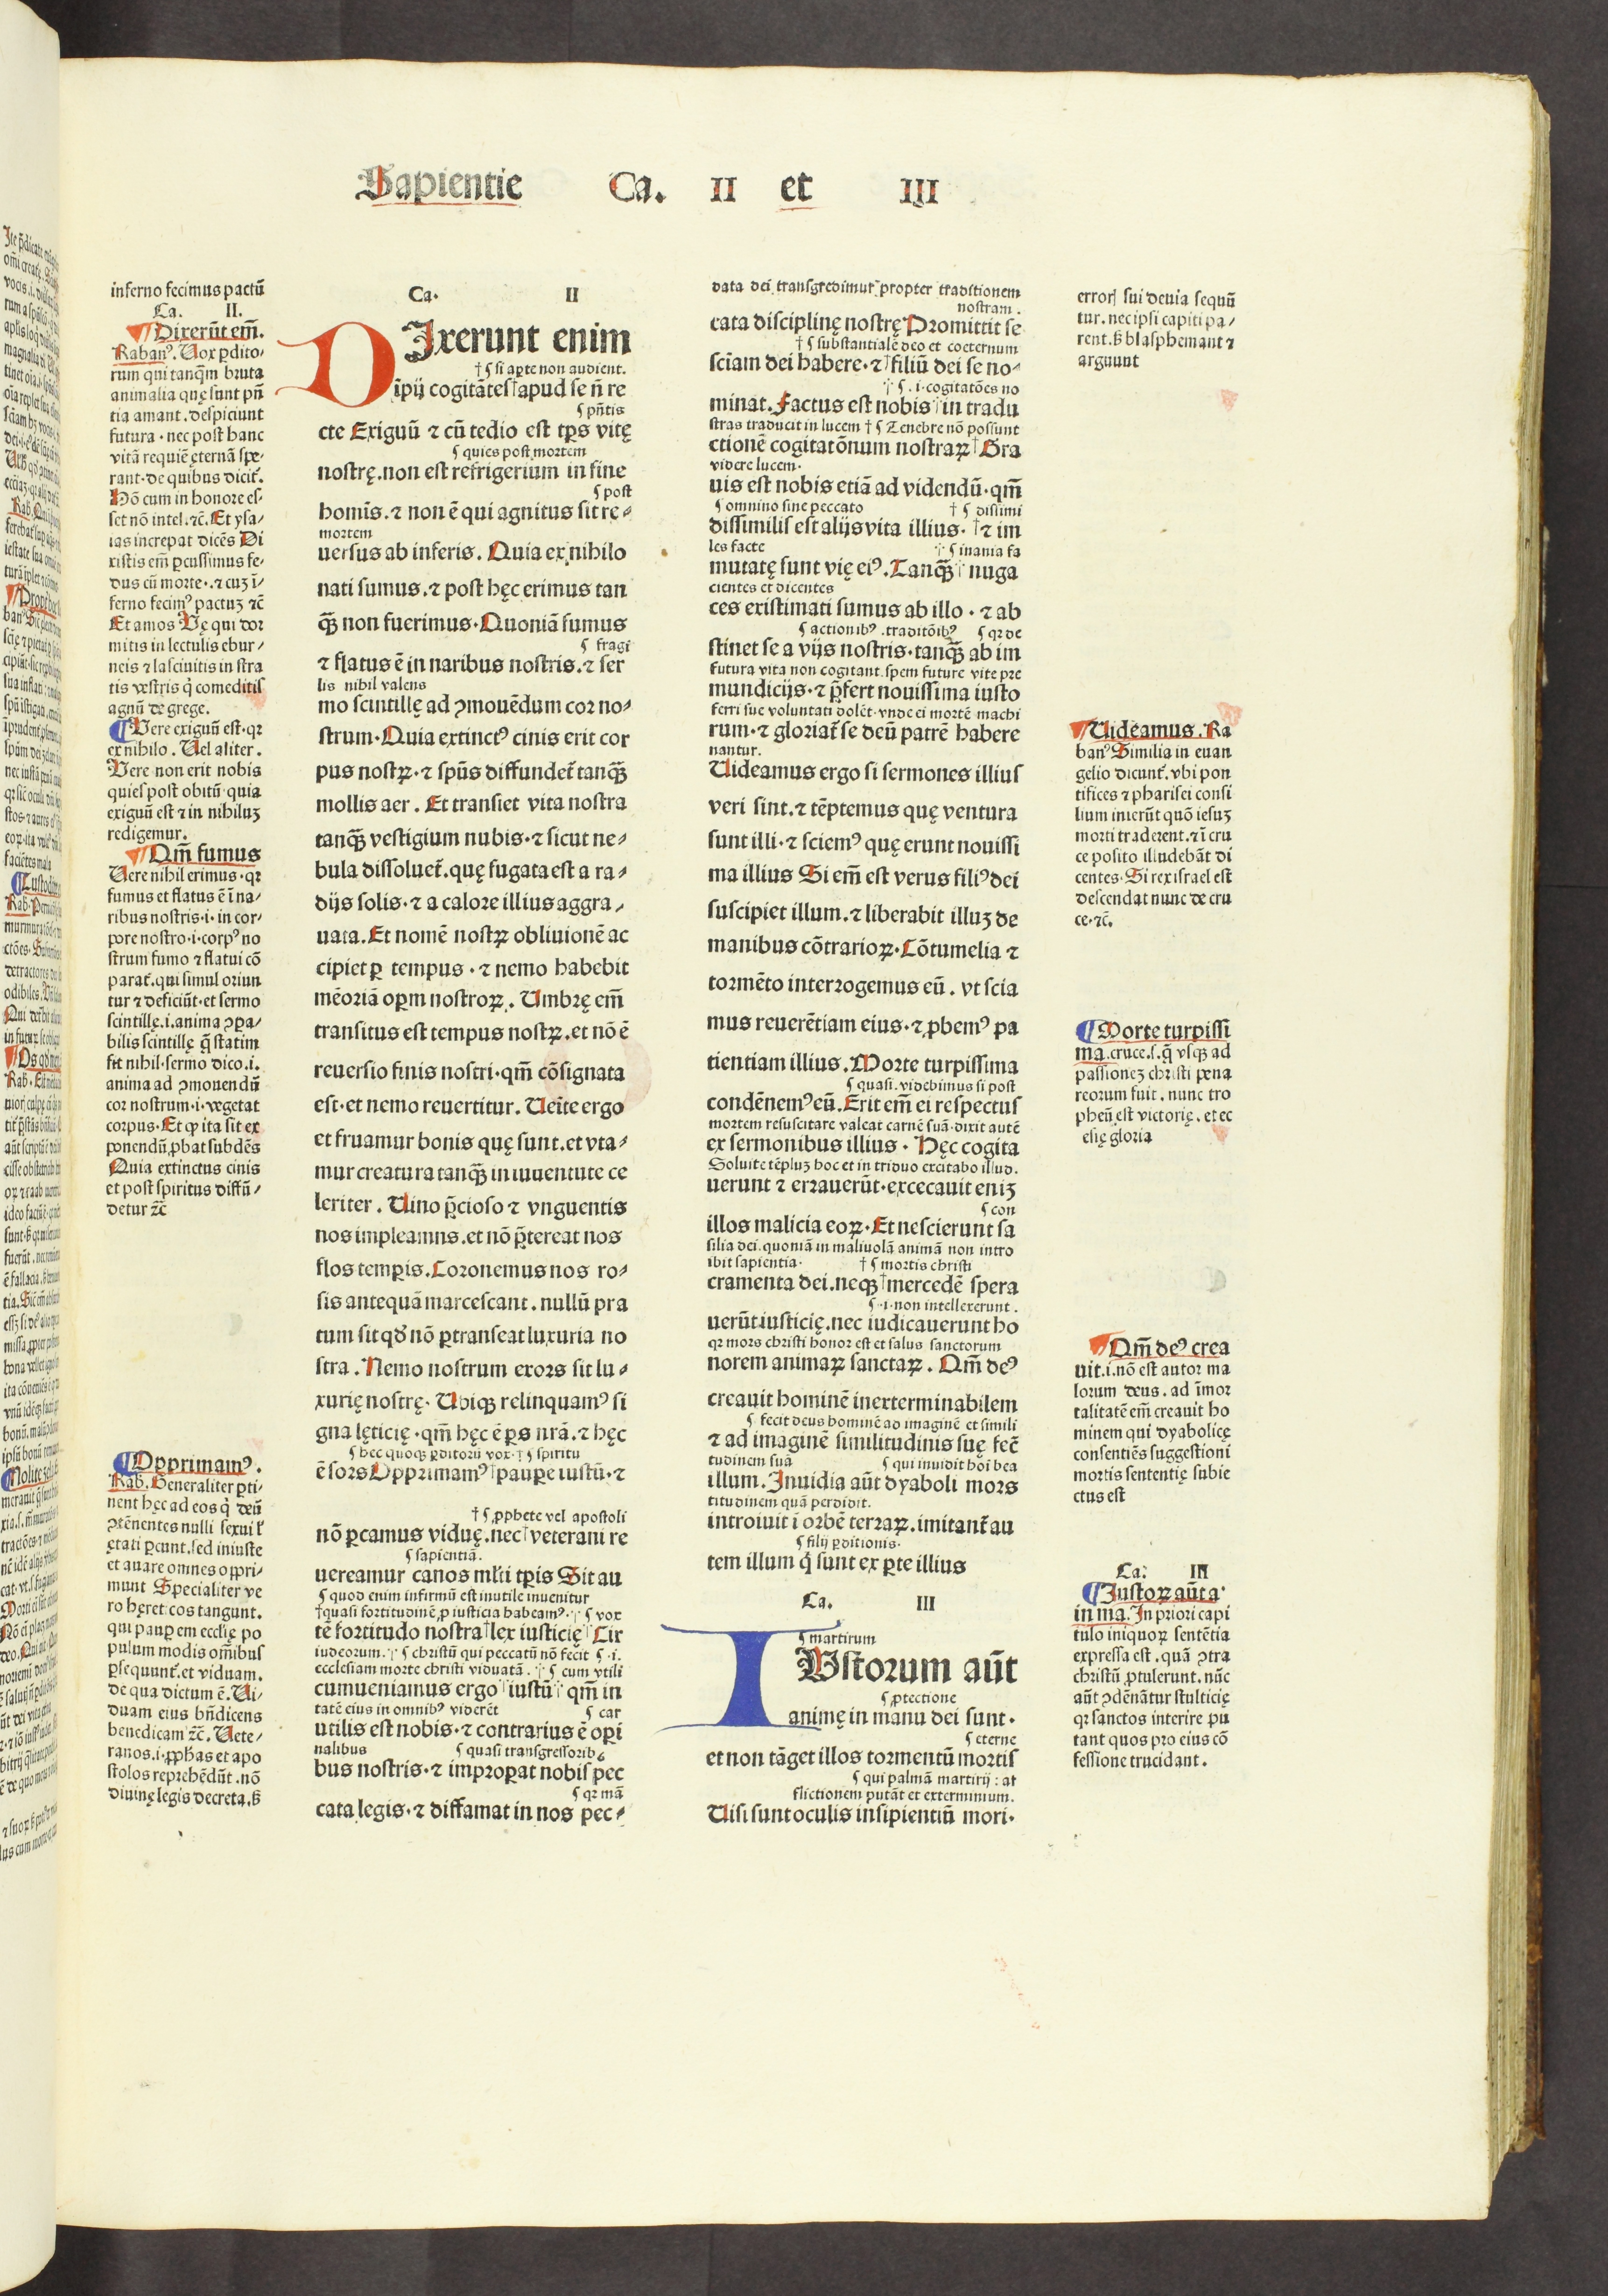 Sapientie Ca. II et III
inferno fecimus pactū
Ca. II.
Dixerūt em̄.
Rabanꝰ. Uox ꝑdito/
rum qui tanq̄m bruta
animalia quę sunt pn̄
tia amant. despiciunt
futura. nec post hanc
vitā requiē ęternā spe/
rant. de quibus dicit̃.
Hō cum in honore es/
set nō intel. ⁊c̃. Et ysa/
ias increpat dicēs Di
xistis em̄ ꝑcussimus fe/
dus cū morte. ⁊ cuꝫ ī/
ferno fecimꝰ pactuꝫ ⁊c̃
Et amos Vę qui dor
mitis in lectulis ebur/
neis ⁊ lasciuitis in stra
tis vestris q̇ comeditis
agnū de grege.
Vere exiguū est. qꝛ
ex nihilo. Uel aliter.
Vere non erit nobis
quies post obitū. quia
exiguū est ⁊ in nihiluꝫ
redigemur.
Qm̄ fumus
Uere nihil erimus. qꝛ
fumus et flatus ē ī na/
ribus nostris. i. in cor/
pore nostro. i. corpꝰ no
strum fumo ⁊ flatui cō
parat̃. qui simul oriun
tur ⁊ deficiūt. et sermo
scintillę. i. anima ꝯꝑa/
bilis scintillę q̄ statim
fit nihil. sermo dico. i.
anima ad ꝯmouendū
cor nostrum. i. vegetat
corpus. Et ꝙ ita sit ex
ponendū ꝓbat subdēs
Quia extinctus cinis
et post spiritus diffū/
detur ⁊c̃
Opprimamꝰ.
Rab. Generaliter ꝑti/
nent hęc ad eos q̇ deū
ꝯtēnentes nulli sexui ł
ętati ꝑcunt. sed iniuste
et auare omnes oppri/
munt Specialiter ve
ro hęret̃. cos tangunt.
qui pauꝑem ecclię po
pulum modis om̄ibus
ꝑsequunt̃. et viduam.
de qua dictum ē. Vi/
duam eius bn̄dicens
benedicam ⁊c̃. Uete/
ranos. i. ꝓphas et apo
stolos reprehēdūt. nō
diuinę legis decreta. ꝫ
Ca. II
DIxerunt enim
† ¶ si aꝑte non audient.
īpij cogitātes † apud se n̄ re
¶ pn̄tis
cte Exiguū ⁊ cū tedio est tꝑs vitę
¶ quies post mortem
nostrę. non est refrigerium in fine
¶ post
homīs. ⁊ non ē qui agnitus sit re/
mortem
uersus ab inferis. Quia ex nihilo
nati sumus. ⁊ post hęc erimus tan
q̄ꝫ non fuerimus. Quoniā fumus
¶ fragi
⁊ flatus ē in naribus nostris. ⁊ ser
lis nihil valens
mo scintillę ad ꝯmouēdum cor no/
strum. Quia extinctꝰ cinis erit cor
pus nostꝝ. ⁊ spūs diffundet̃ tanq̄ꝫ
mollis aer. Et transiet vita nostra
tanq̄ꝫ vestigium nubis. ⁊ sicut ne/
bula dissoluet̃. quę fugata est a ra/
dijs solis. ⁊ a calore illius aggra/
uata. Et nomē nostꝝ obliuionē ac
cipiet ꝑ tempus. ⁊ nemo habebit
mēoriā oꝑm nostroꝝ. Umbrę em̄
transitus est tempus nostꝝ. et nō ē
reuersio finis nostri. qm̄ cōsignata
est. et nemo reuertitur. Ueīte ergo
et fruamur bonis quę sunt. et vta/
mur creatura tanq̄ꝫ in iuuentute ce
leriter. Uino p̄cioso ⁊ vnguentis
nos impleamns. et nō p̄tereat nos
flos temꝑis. Coronemus nos ro/
sis antequā marcescant. nullū pra
tum sit qđ nō ꝑtranseat luxuria no
stra. Nemo nostrum exors sit lu/
xurię nostrę. Ubiqꝫ relinquamꝰ si
gna lęticię. qm̄ hęc ē ꝑs nrā. ⁊ hęc
¶ hec quoqꝫ ꝑditorū vox. † ¶ spiritu
ē sors Opprimamꝰ † pauꝑe iustū. ⁊
† ¶ ꝓphete vel apostoli
nō ꝑcamus viduę. nec † veterani re
¶ sapientiā.
uereamur canos mlti tꝑis Sit au
¶ quod enim infirmū est inutile inuenitur
† quasi fortitudinē ꝓ iusticia habeamꝰ. † ¶ vox
tē fortitudo nostra † lex iusticię † Cir
iudeorum. † ¶ christū qui peccatū nō fecit ¶ .i.
ecclesiam morte christi viduatā. † ¶ cum vtili
cumueniamus ergo † iustū † qm̄ in
tatē eius in omnibꝰ viderēt ¶ car
utilis est nobis. ⁊ contrarius ē oꝑi
nalibus ¶ quasi transgressoribꝰ
bus nostris. ⁊ improꝑat nobis pec
¶ qꝛ mā
cata legis. ⁊ diffamat in nos pec/
data dei transgredimur propter traditionem
nostram.
cata disciplinę nostrę Promittit se
† ¶ substantialē deo et coeternum
sciam dei habere. ⁊ † filiū dei se no/
† ¶ .i. cogitatōes no
minat. Factus est nobis † in tradu
stras traducit in lucem † ¶ Tenebre nō possunt
ctionē cogitatōnum nostraꝝ † Gra
videre lucem.
uis est nobis etiā ad videndū. qm̄
¶ omnino sine peccato † ¶ dissimi
dissimilis est alijs vita illius. † ⁊ im
les facte † ¶ inania fa
mutatę sunt vię eiꝰ. Tanq̄ꝫ † nuga
cientes et dicentes
ces existimati sumus ab illo. ⁊ ab
¶ actionibꝰ. traditōibꝰ ¶ qꝛ de
stinet se a vijs nostris. tanq̄ꝫ ab im
futura vita non cogitant. spem future vite pre
mundicijs. ⁊ p̄fert nouissima iusto
ferri sue voluntati dolēt. vnde ei mortē machi
rum. ⁊ gloriat̃ se deū patrē habere
nantur.
Uideamus ergo si sermones illius
veri sint. ⁊ tēptemus quę ventura
sunt illi. ⁊ sciemꝰ quę erunt nouissi
ma illius Si em̄ est verus filiꝰ dei
suscipiet illum. ⁊ liberabit illuꝫ de
manibus cōtrarioꝝ. Cōtumelia ⁊
tormēto interrogemus eū. vt scia
mus reuerētiam eius. ⁊ ꝓbemꝰ pa
tientiam illius. Morte turpissima
¶ quasi. videbimus si post
condēnemꝰ eū. Erit em̄ ei respectus
mortem resuscitare valeat carnē suā. dixit autē
ex sermonibus illius. Hęc cogita
Soluite tēpluꝫ hoc et in triduo excitabo illud.
uerunt ⁊ errauerūt. excecauit eniꝫ
¶ con
illos malicia eoꝝ. Et nescierunt sa
silia dei. quoniā in maliuolā animā non intro
ibit sapientia. † ¶ mortis christi
cramenta dei. neqꝫ † mercedē spera
¶ .i. non intellexerunt.
uerūt iusticię. nec iudicauerunt ho
qꝛ mors christi honor est et salus sanctorum
norem animaꝝ sanctaꝝ. Qm̄ deꝰ
creauit hominē inexterminabilem
¶ fecit deus hominē ad imaginē et simili
⁊ ad imaginē similitudinis suę fec̄
tudinem suā ¶ qui inuidit hōi bea
illum. Inuidia aūt dyaboli mors
titudinem quā perdidit.
introiuit ī orbē terraꝝ. imitant̃ au
¶ filij ꝑditionis.
tem illum q̇ sunt ex ꝑte illius
Ca. III
¶ martirum
IUstorum aūt
¶ ꝓtectione
animę in manu dei sunt.
¶ eterne
et non tāget illos tormentū mortis
¶ qui palmā martirij: at
flictionem putāt et exterminium.
Uisi sunt oculis insipientiū mori.
errorꝭ sui deuia sequū
tur. nec ipsi capiti pa/
rent. ꝫ blasphemant ⁊
arguunt
Uideamus. Ra
banꝰ Similia in euan
gelio dicunt̃. vbi pon
tifices ⁊ pharisei consi
lium inierūt quō iesuꝫ
morti traderent. ⁊ī cru
ce posito illudebāt di
centes. Si rex israel est
descendat nunc de cru
ce. ⁊c̃.
Morte turpissi
ma. cruce. s. q̄ vsqꝫ ad
passioneꝫ christi pena
reorum fuit. nunc tro
pheū est victorię. et ec
clesię gloria
Qm̄ deꝰ crea
uit. i. nō est autor ma
lorum deus. ad īmor
talitatē em̄ creauit ho
minem qui dyabolicę
consentiēs suggestioni
mortis sententię subie
ctus est
Ca. III
Iustoꝝ aūt a
in ma. In priori capi
tulo iniquoꝝ sentētia
expressa est. quā ꝯtra
christū ꝓtulerunt. nūc
aūt ꝯdēnātur stulticię
qꝛ sanctos interire pu
tant quos pro eius cō
fessione trucidant.